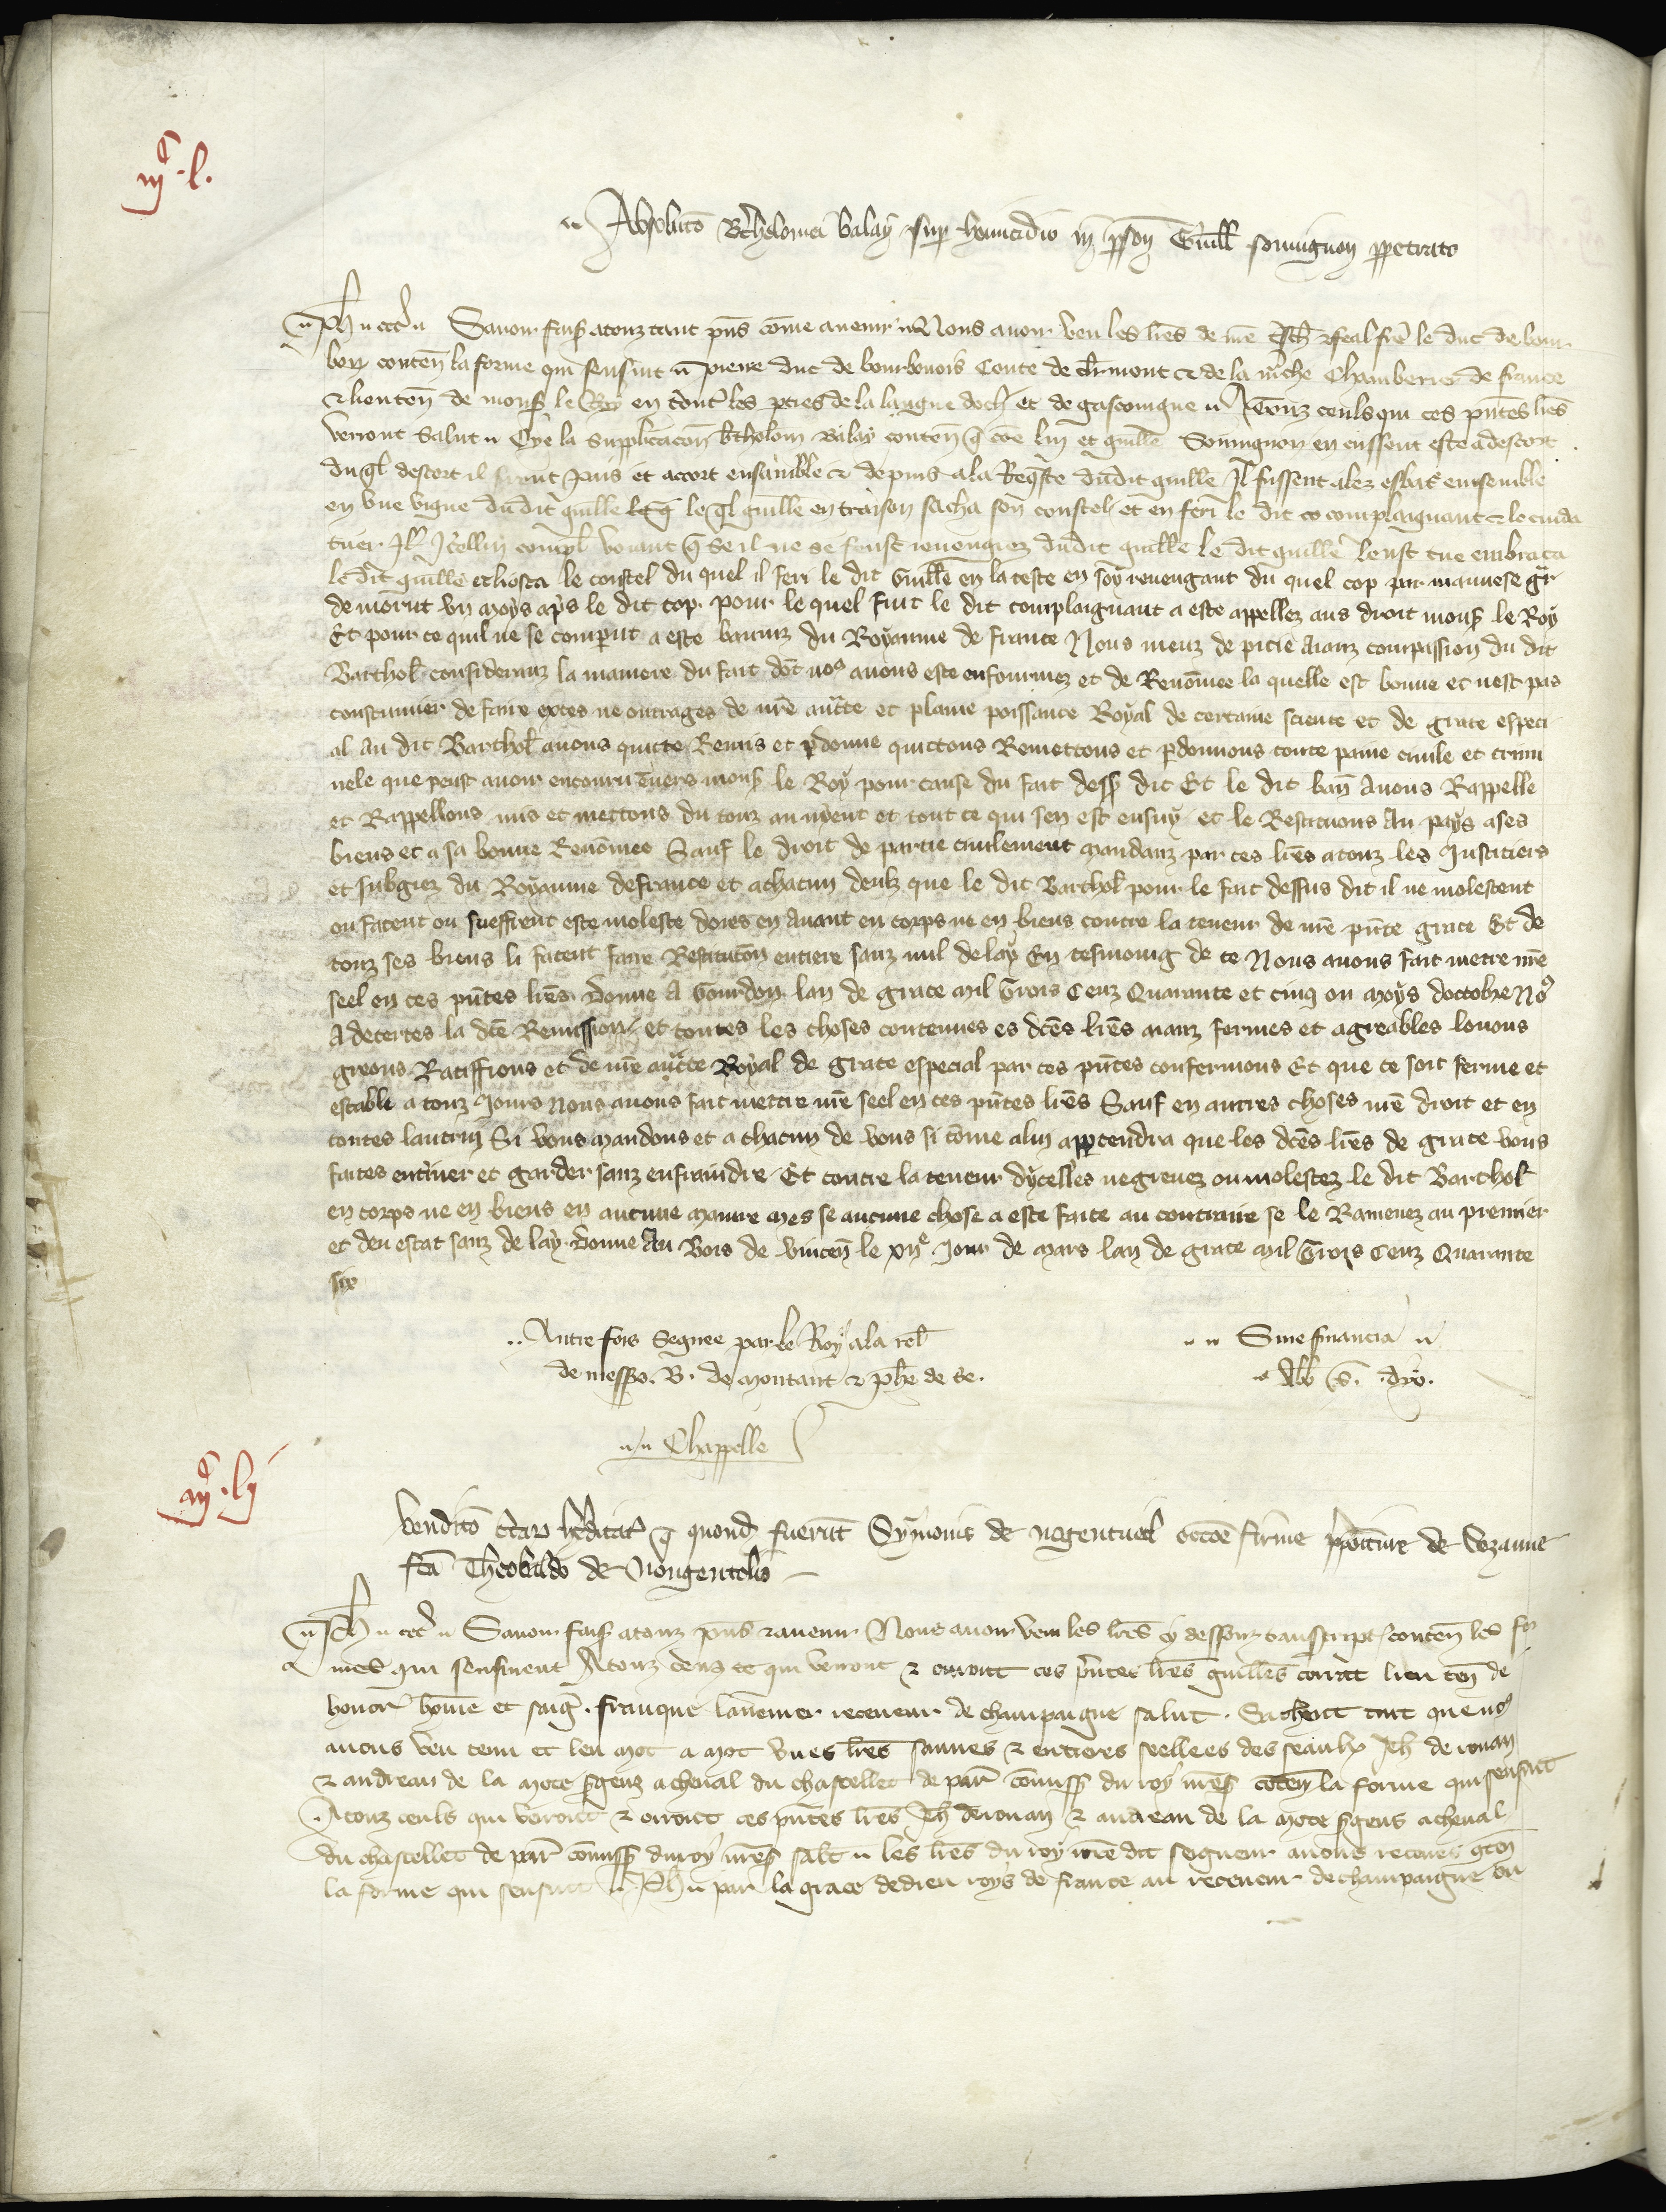 iijc. l.
Absoluto Bthelomei balay sup homicidio in pson Guill sonuignon ppetrato
Ph etc Sauoir fais a touz tant pns come auenir Nous auoir veu les lres de nre chr feal fre le duc de bour
bon conten la forme qui sensuit Pierre duc de bourbonois Conte de clrmont et de la mche Chamberier de france
et lieuten de mons le Roy en tout les pties de la langue doch et de gascoingne A Touz ceuls qui ces pntes lres
verront Salut Oye la supplicacon btholom Balay conten q coe lui et guille Sonuignon en eussent este a descort
du ql descort il furent puis et accort ensamble et depuis a la Reqste dudit guille Il fussent alez esbatre ensemble
en vne vigne dudit guille le ql guille en traison sacha son coustel et en feri le dit co complaignant et le cuida
tuer Icellui compl voiant q se il ne se feust reuengiez dudit guille le dit guille leust tue embraca
le dit guille et li osta le coustel du quel il feri le dit Guille en la teste en soy reuengant du quel cop par mauuese gr
de morut vn moys aps le dit cop pour le quel fait le dit complaignant a este appellez aus droit mons le Roy
Et pour ce quil ne se comparut a este baniz du Royaume de france Nous meuz de pitie aianz compassion du dit
Barthol consideranz la maniere du fait dot nos auons este enfourmez et de Renomee la quelle est bonne et nest pas
coustumier de faire exces ne outrages de nre aucte et plaine poissance Royal de certaine science et de grace especi
al au dit Barthol auons quitte Remis et pdonne quittons Remettons et pdonnons toute paine ciuile et crimi
nele que peust auoir encouru enuers mons le Roy pour cause du fait dess dit Et le dit ban Auons Rappelle
et Rappellons mis et mettons du touz au nyent et tout ce qui sen est ensuy et le Restituons Au pays a ses
biens et a sa bonne Renomee Sauf le droit de partie ciuilement mandanz par ces lres a touz les Justiciers
et subgiez du Royaume de france et a chacun deulz que le dit Barthol pour le fait dessus dit il ne molestent
ou facent ou sueffrent estre moleste dores en Auant en corps ne en biens contre la teneur de nre pnte grace Et de
touz ses biens li facent faire Restitucon entiere sanz nul delay En tesmoing de ce Nous auons fait mettre nre
seel en ces pntes lres Donne A Gourdon lan de grace mil Trois Cenz Quarante et cinq ou moys doctobre Nos
A decertes la dce Remission et toutes les choses contenues es dces lres aianz fermes et agreables louons
greons Ratiffions et de nre aucte Royal de grace especial par ces pntes confermons Et que ce soit ferme et
estable a touz Jours Nous auons fait mettre nre seel en ces pntes lres Sauf en autres choses nre droit et en
toutes lautrui Si vous Mandons et a chacun de vous si come a lui appertendra que les dces lres de grace vous
faites enteriner et garder sanz enfraindre Et contre la teneur dycelles ne greuez ou molestez le dit Barthol
en corps ne en biens en aucune maniere Mes se aucune chose a este faite au contraire se le Ramenez au premier
et deu estat sanz delay Donne Au Bois de vincen le xije Jour de Mars lan de grace mil Trois Cenz Quarante
six
Autre fois Segnee par le Roy a la rel
de messrs. B. de montaut et phe de se.
Sine financia
Chappelle
iijc. lj
Venditio ctar hditat q quond fuerunt Symonis de nogentuel occoe firme ppoiture de Sezanne
fca Theobaldo de Nongentolio
Ph etc Sauoir fais a touz pns et auenir Nous auoir veu les lres cy dessouz transcript conten les for
mes qui sensiuent A touz ceuz ce qui verront et orront ces pntes lres guilles lieu ten de
honor home et saige . franque receueur de champaigne salut . Sachent tuit que nos
auons veu tenu et leu mot a mot vnes lres sannes et entieres seellees des seaulx Jeh de rouan
et andreau de la mote sgenz a cheual du chastellet de par comiss du roy nres coten la forme qui sensuit
A touz ceuls qui verront et orront ces pntes lres Jeh de rouan et andreau de la mote sgens a cheual
du chastellet de par comiss du roy nres salt les lres du roy nre dit seigneur auons receues gten
la forme qui sensuit Ph par la grace de dieu roys de france au receueur de champaigne ou